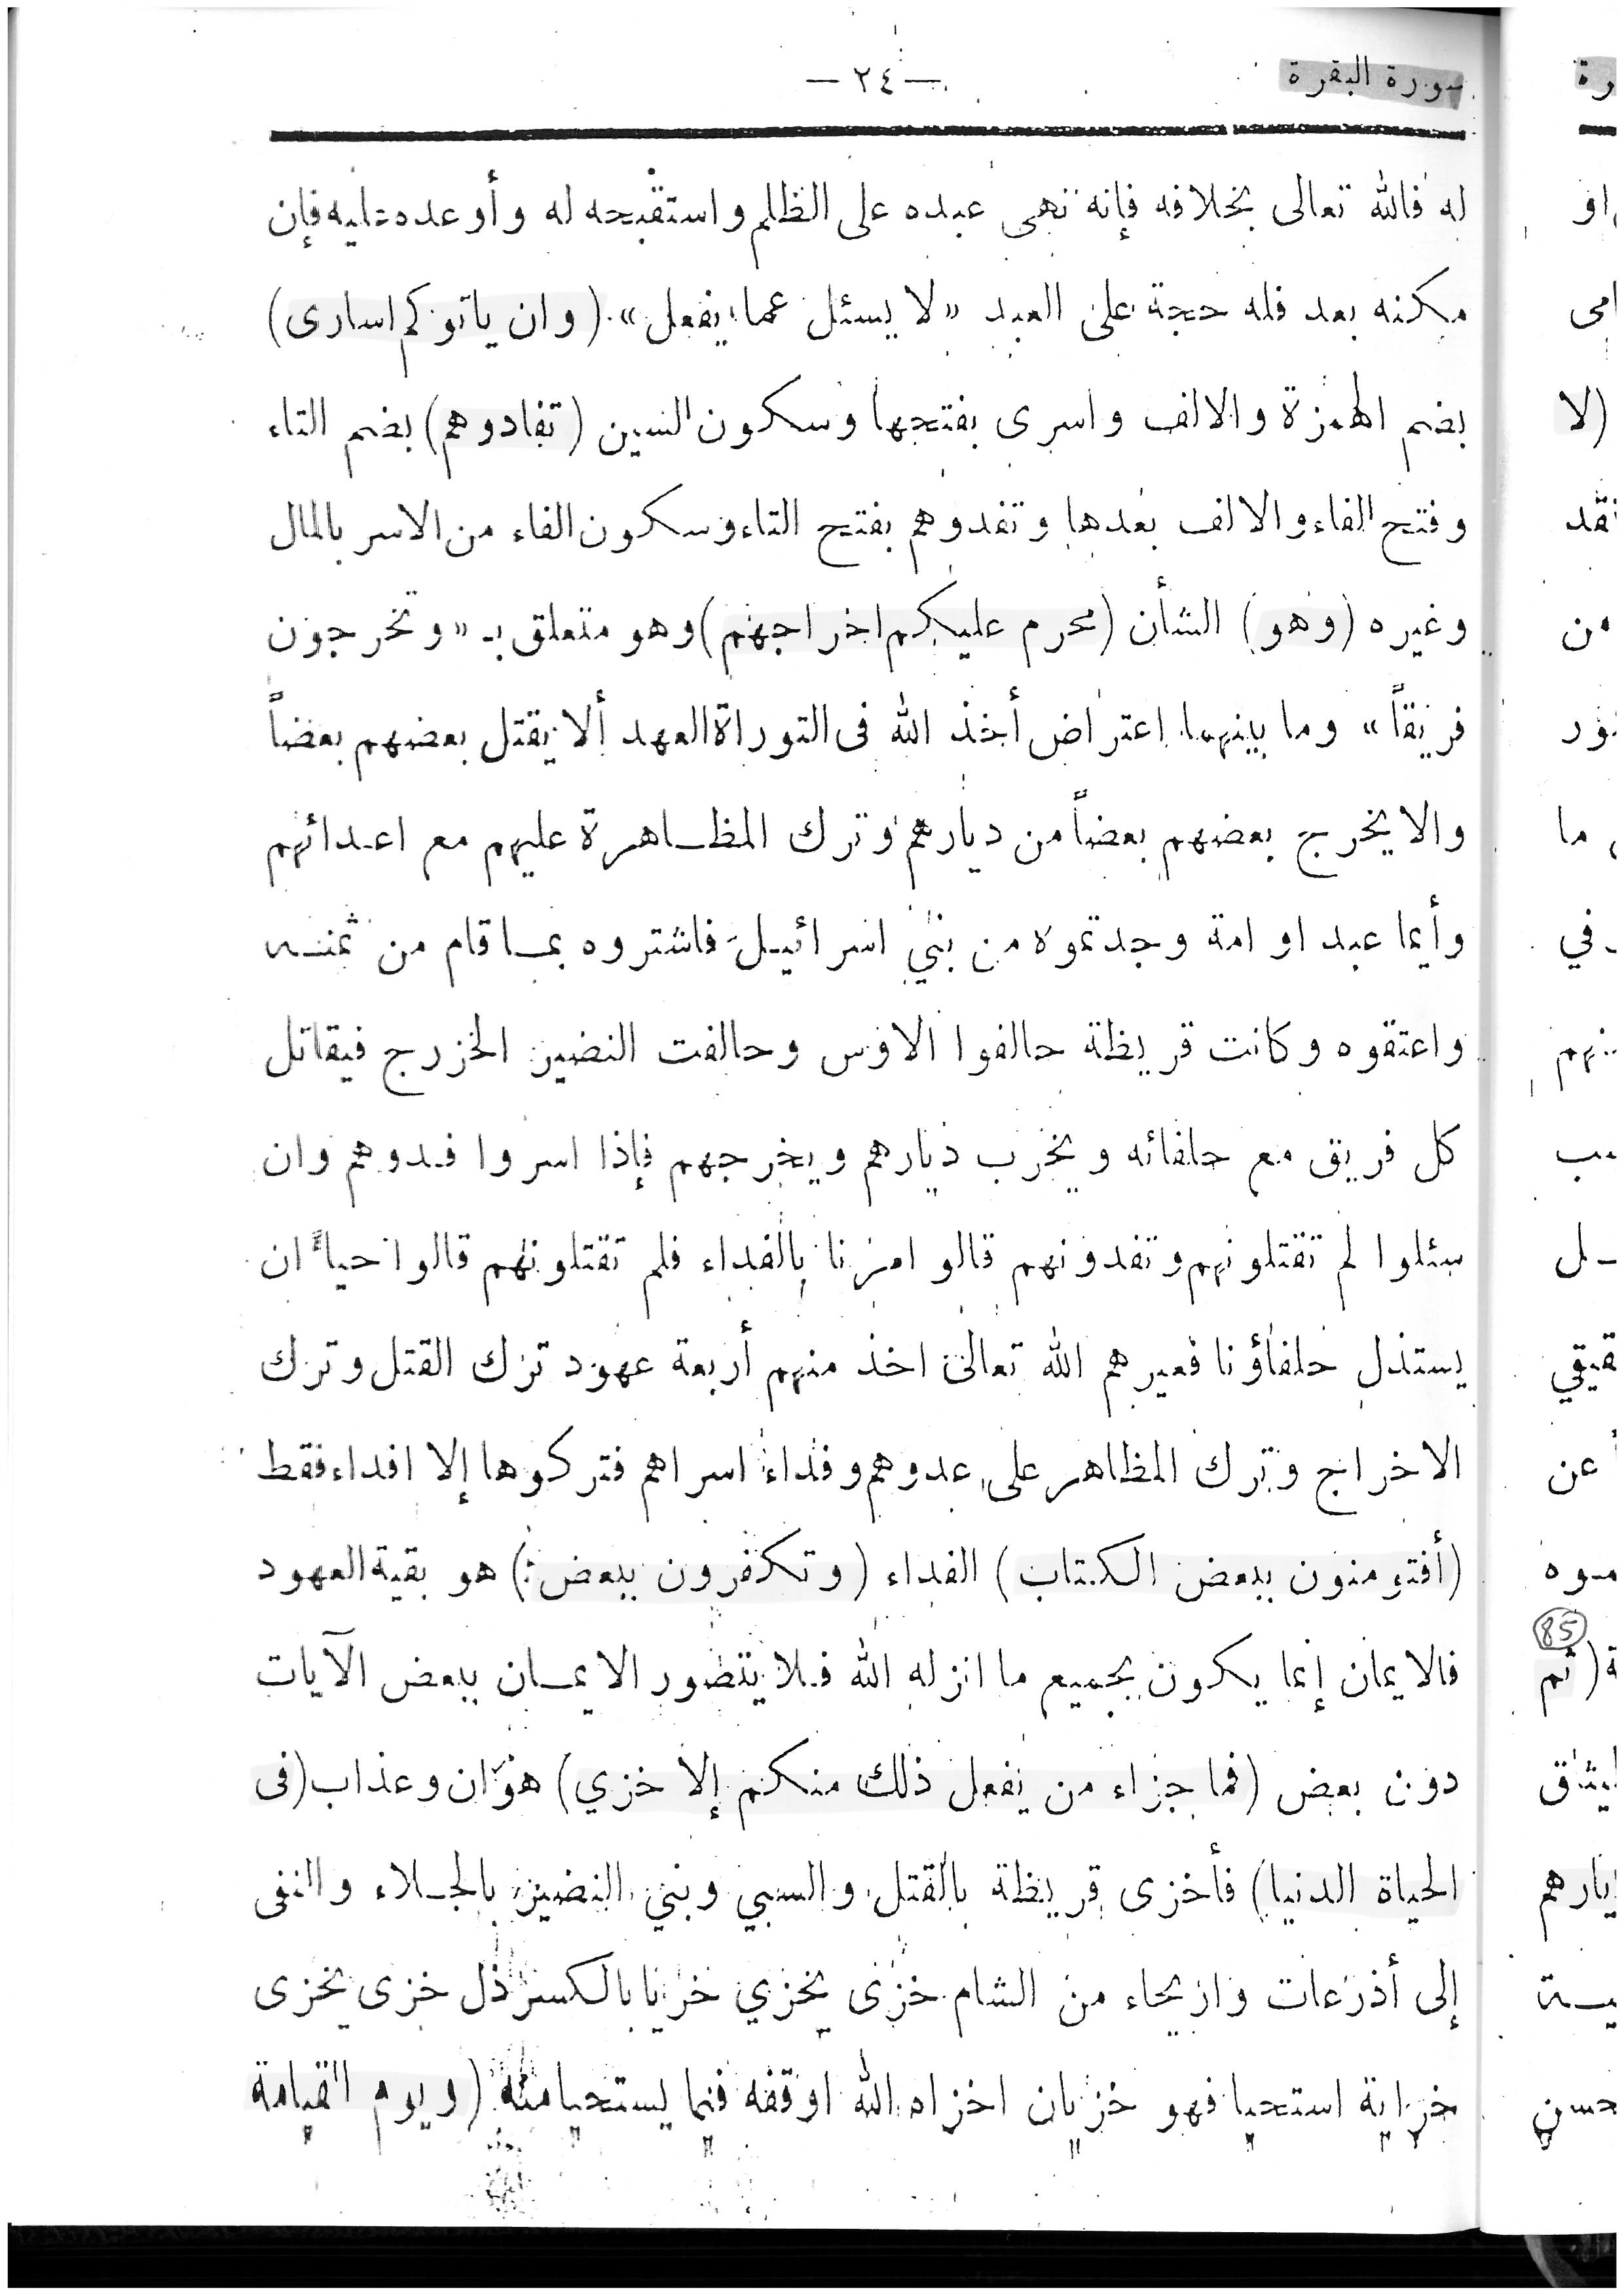 سورة البقرة — ٢٤ —
له فالله تعالى بخلافه فإنه نهى عبده على الظلم واستقبحه له وأوعده عليه فإن
مكنه بعد فله حجة على العبد «لا يسئل عما يفعل» (وان ياتوكم اسارى)
بضم الهمزة والالف واسرى بفتحها وسكون السين (تفادوهم) بضم التاء
وفتح الفاء والالف بعدها وتفدوهم بفتح التاء وسكون الفاء من الاسر بالمال
وغيره (وهو) الشأن (محرم عليكم اخراجهم) وهو متعلق بـ «وتخرجون
فريقاً» وما بينهما اعتراض أخذ الله فى التوراة العهد ألا يقتل بعضهم بعضاً
والا يخرج بعضهم بعضاً من ديارهم وترك المظـاهرة عليهم مع اعـدائهم
وأيما عبد او امة وجدتموه من بني اسرائيـل فاشتروه بمـا قام من ثمنـه
واعتقوه وكانت قريظة حالفوا الاوس وحالفت النضير الخزرج فيقاتل
كل فريق مع حلفائه ويخرب ديارهم ويخرجهم فإذا اسروا فـدوهم وان
سئلوا لم تقتلونهم وتفدونهم قالو امرنا بالفداء فلم تقتلونهم قالوا حياءً ان
يستذل حلفاؤنا فعيرهم الله تعالى اخذ منهم أربعة عهود ترك القتل وترك
الاخراج وترك المظاهر على عدوهم وفداء اسراهم فتركوها إلا افداء فقط
(أفتؤمنون ببعض الكتاب) الفداء (وتكفرون ببعض) هو بقية العهود
فالايمان إنما يكون بجميع ما انزله الله فـلا يتصور الايمـان ببعض الآيات
دون بعض (فما جزاء من يفعل ذلك منكم إلا خزي) هوان وعذاب (فى
الحياة الدنيا) فأخزى قريظة بالقتل والسبي وبني النضير بالجـلاء والنفى
إلى أذرعات واريحاء من الشام خزى يخزي خزيا بالكسر ذل خزى يخزى
خزاية استحيا فهو خزيان اخزاه الله اوقفه فيما يستحيا منه (ويوم القيامة
رة
(لا
من
ما
في
عن
85
(ثم
حسن